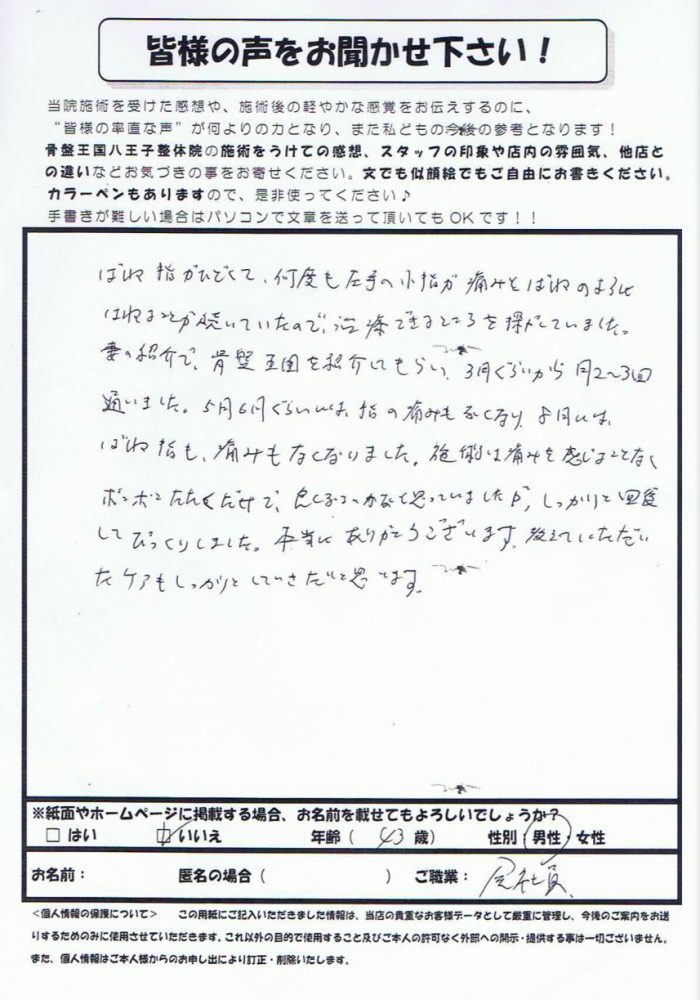 皆様の声をお聞かせ下さい!
当院施術を受けた感想や、施術後の軽やかな感覚をお伝えするのに、
“皆様の率直な声”が何よりの力となり、また私どもの今後の参考となります!
骨盤王国八王子整体院の施術をうけての感想、スタッフの印象や店内の雰囲気、他店と
の違いなどお気づきの事をお寄せください。文でも似顔絵でもご自由にお書きください。
カラーペンもありますので、是非使ってください♪
手書きが難しい場合はパソコンで文章を送って頂いてもOKです!!
ばね指がひどくて、何度も左手の小指が痛みとばねのように
はねることが続いていたので、治療できるところを探がしていました。
妻の紹介で、骨盤王国を紹介してもらい、3月ぐらいから月2〜3回
通いました。5月6月ぐらいには、指の痛みもなくなり、8月には、
ばね指も、痛みもなくなりました。施術は痛みを感じることなく
ポンポンたたくだけで、良くなるのかなと思っていましたが、しっかりと回復
してびっくりしました。本当にありがとうございます。教えていただい
たケアもしっかりとしていきたいと思います。
※紙面やホームページに掲載する場合、お名前を載せてもよろしいでしょうか?
□はい □いいえ 年齢( 43 歳) 性別(男性・女性
お名前: 匿名の場合( ) ご職業: 会社員
<個人情報の保護について> この用紙にご記入いただきました情報は、当店の貴重なお客様データとして厳重に管理し、今後のご案内をお送
りするためのみに使用させていただきます。これ以外の目的で使用すること及びご本人の許可なく外部への開示・提供する事は一切ございません。
また、個人情報はご本人様からのお申し出により訂正・削除いたします。